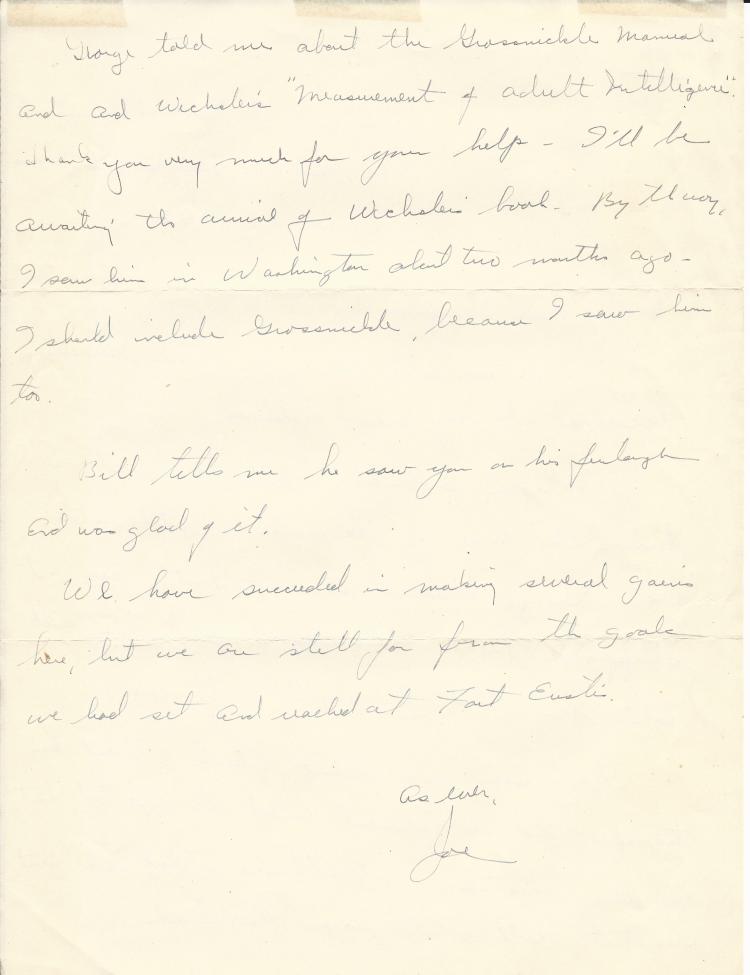 George told me about the Grossnickle Manual
and and Wechsler's "Measurement of adult Intelligence".
Thank you very much for your help - I'll be
awaiting the arrival of Wechsler's book. By the way,
I saw him in Washington about two months ago -
I should include Grossnickle, because I saw him
too.
Bill tells me he saw you on his furlough
and was glad of it.
We have succeeded in making several gains
here, but we are still far from the goals
we had set and reached at Fort Eustis.
As ever,
Joe